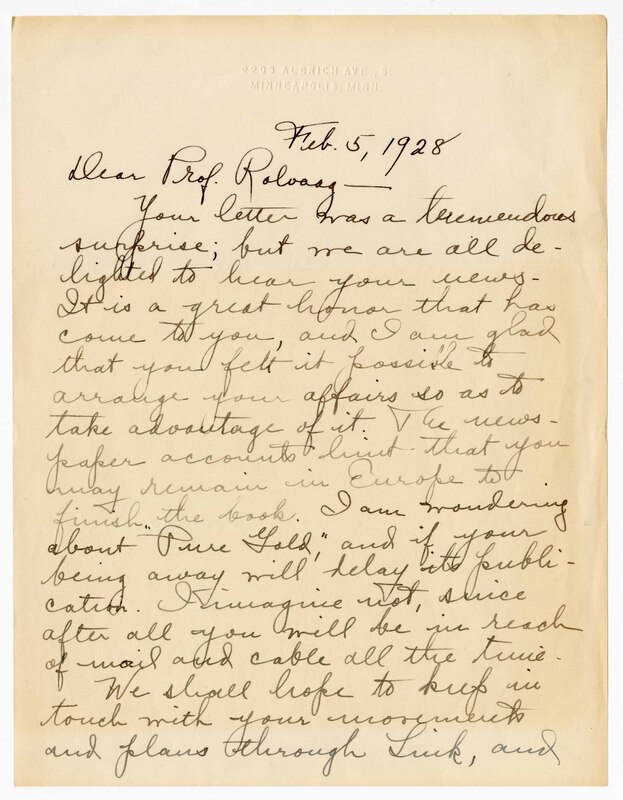 2293 ALDRICH AVE. S.
MINNEAPOLIS, MINN.
Feb. 5, 1928
Dear Prof. Rolvaag —
Your letter was a tremendous
surprise; but we are all de-
lighted to hear your news.
It is a great honor that has
come to you, and I am glad
that you felt it possible to
arrange your affairs so as to
take advantage of it. The news-
paper accounts hint that you
may remain in Europe to
finish the book. I am wondering
about "Pure Gold," and if your
being away will delay its publi-
cation. I imagine not, since
after all you will be in reach
of mail and cable all the time.
We shall hope to keep in
touch with your movements
and plans through Link, and